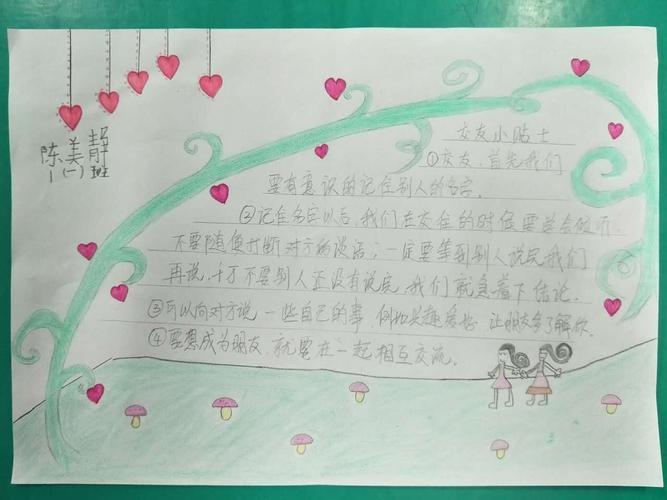 陈美静
1(一)班
交友小贴士
①交友,首先我们
要有意识的记住别人的名字。
②记住名字以后,我们在交往的时候要学会倾听,
不要随便打断对方的谈话;一定要等到别人说完我们
再说,千万不要别人还没有说完,我们就急着下结论。
③可以向对方说一些自己的事,例如兴趣爱好,让朋友多了解你。
④要想成为朋友,就要在一起相互交流。